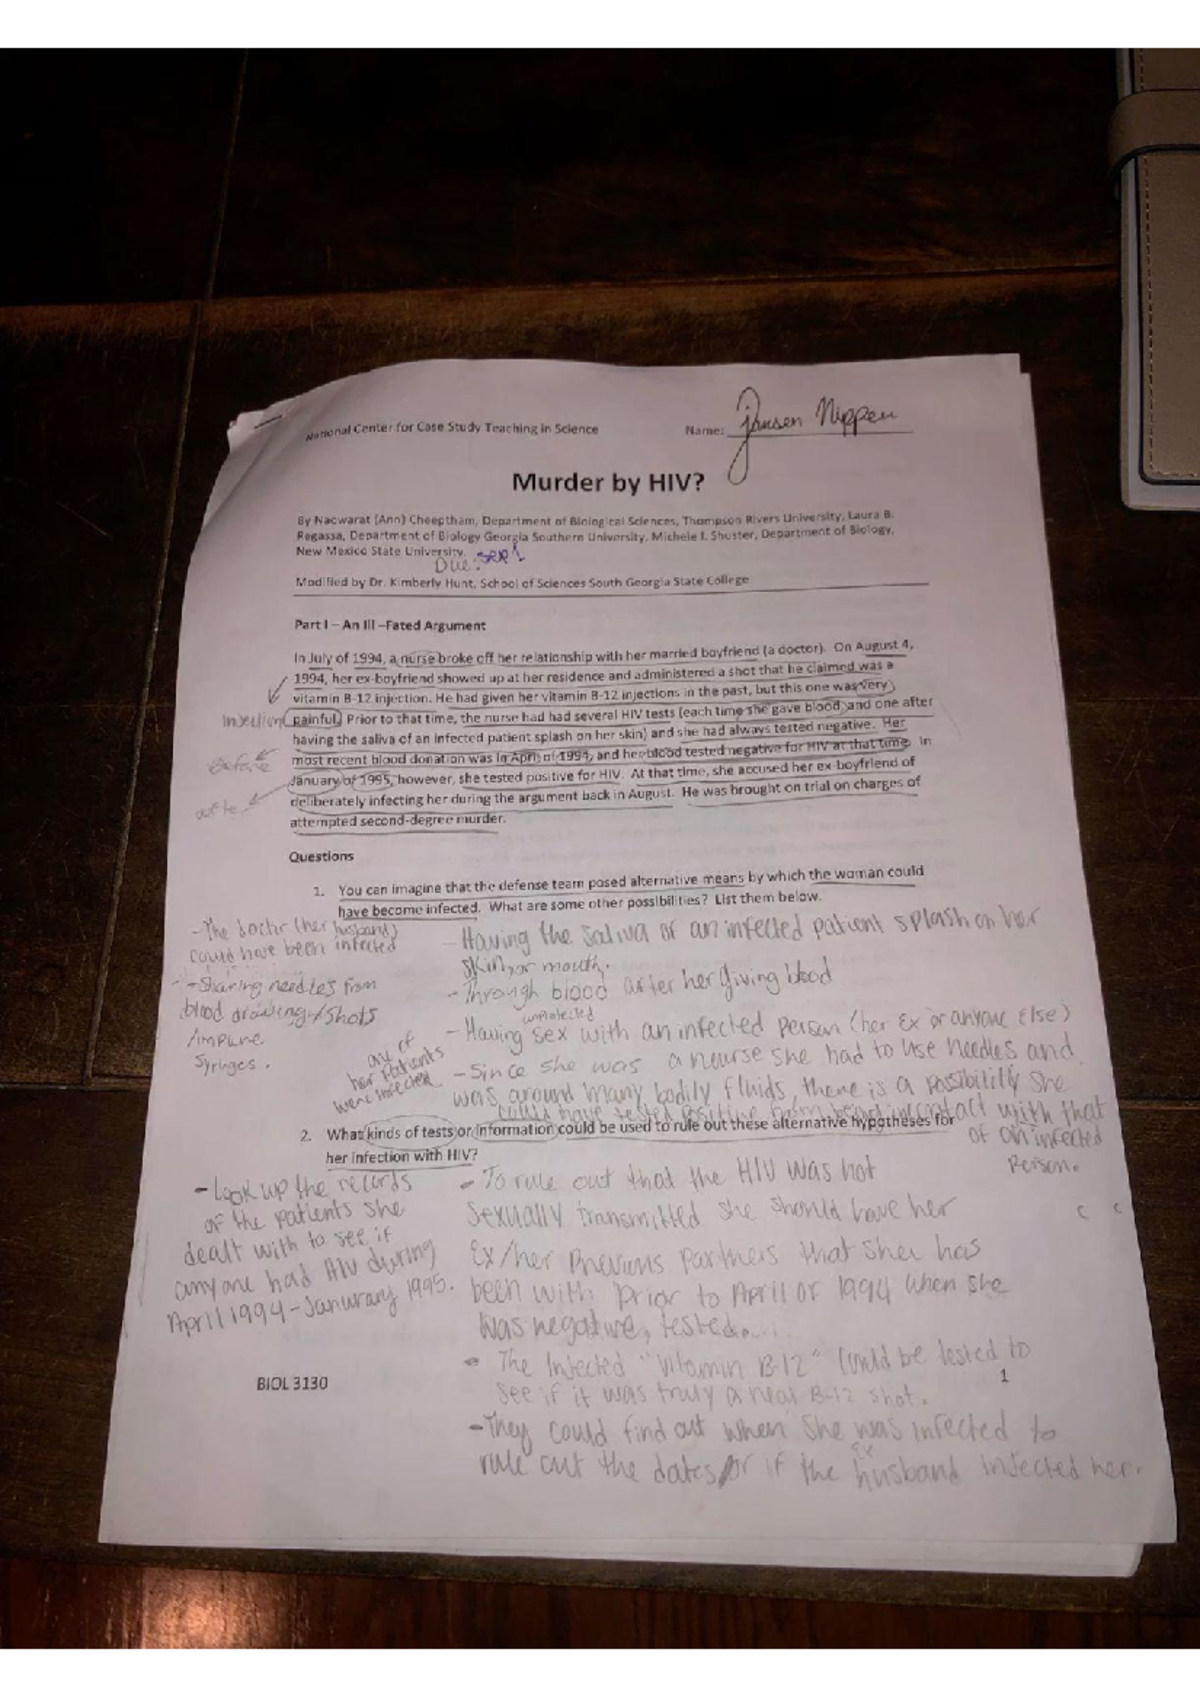 National Center for Case Study Teaching in Science
Name: Jansen Nippen
Murder by HIV?
By Nacwarat (Ann) Cheeptham, Department of Biological Sciences, Thompson Rivers University, Laura B.
Regassa, Department of Biology Georgia Southern University, Michele I. Shuster, Department of Biology,
New Mexico State University.
Due: Sep 1
Modified by Dr. Kimberly Hunt, School of Sciences South Georgia State College
Part I – An Ill –Fated Argument
In July of 1994, a nurse broke off her relationship with her married boyfriend (a doctor). On August 4,
1994, her ex-boyfriend showed up at her residence and administered a shot that he claimed was a
vitamin B-12 injection. He had given her vitamin B-12 injections in the past, but this one was very
painful. Prior to that time, the nurse had had several HIV tests (each time she gave blood and one after
having the saliva of an infected patient splash on her skin) and she had always tested negative. Her
most recent blood donation was in April of 1994, and her blood tested negative for HIV at that time. In
January of 1995, however, she tested positive for HIV. At that time, she accused her ex-boyfriend of
deliberately infecting her during the argument back in August. He was brought on trial on charges of
attempted second-degree murder.
Injection
Before
after
Questions
1. You can imagine that the defense team posed alternative means by which the woman could
have become infected. What are some other possibilities? List them below.
- The doctor (her husband)
could have been infected
- Sharing needles from
blood drawing/shots
/impure
Syringes.
- Having the saliva of an infected patient splash on her
skin, or mouth.
- Through blood after her giving blood
unprotected
- Having sex with an infected person (her ex or anyone else)
- Since she was a nurse she had to use needles and
was around many bodily fluids, there is a possibility she
could have tested positive from being in contact with that
of an infected
person.
her patients
were infected
2. What kinds of tests or information could be used to rule out these alternative hypotheses for
her infection with HIV?
- Look up the records
of the patients she
dealt with to see if
anyone had HIV during
April 1994 - Janurary 1995.
- To rule out that the HIV was not
sexually transmitted she should have her
Ex/her Previous Partners that she has
been with prior to April of 1994 when she
was negative, tested...
- The Injected "Vitamin B-12" could be tested to
see if it was truly a real B-12 shot.
- They could find out when she was infected to
rule out the dates, or if the ex husband injected her.
BIOL 3130
1